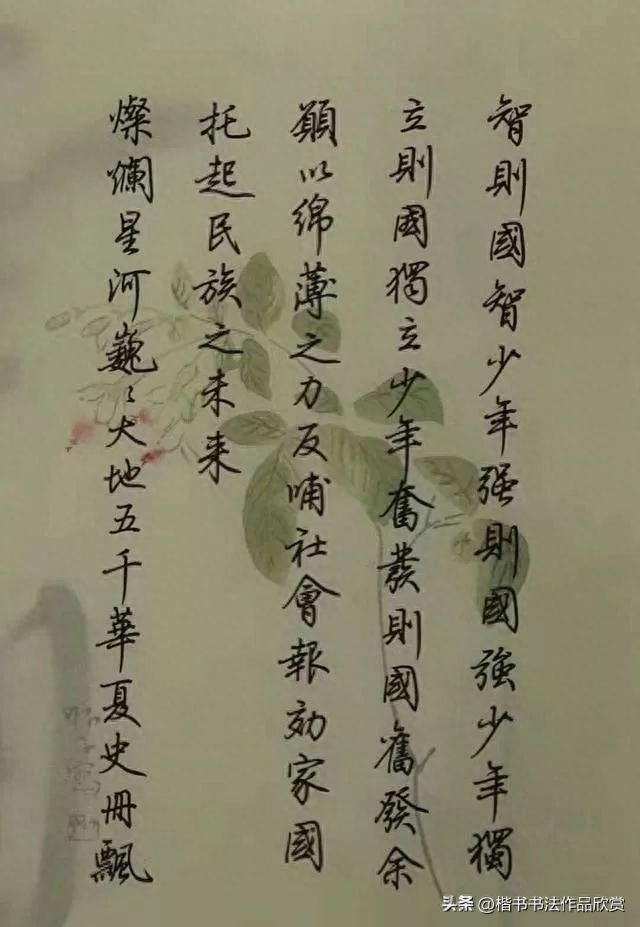 智則國智少年强則國強少年獨
立則國獨立少年奮發則國奮發余
願以綿薄之力反哺社會報効家國
托起民族之未来
燦爛星河巍〻大地五千華夏史冊飄
头条 @楷书书法作品欣赏